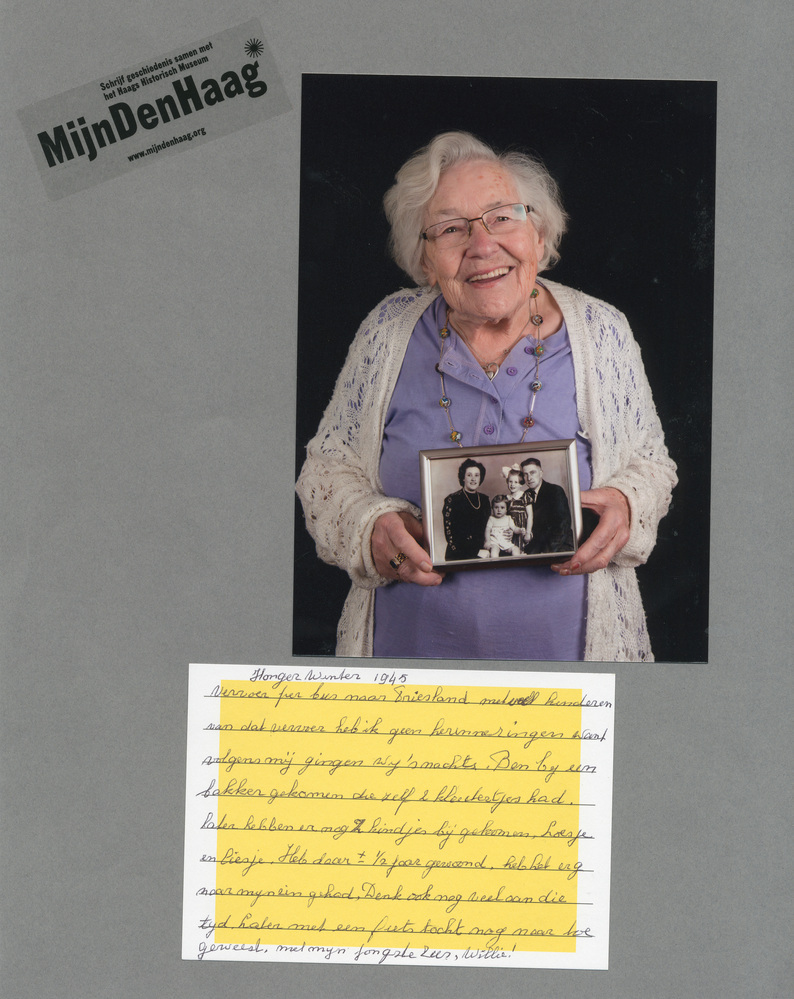 Schrijf geschiedenis samen met
het Haags Historisch Museum
MijnDenHaag
www.mijndenhaag.org
Honger Winter 1945
Vervoer per bus naar Friesland met veel kinderen
van dat vervoer heb ik geen herinneringen want
volgens mij gingen wy 's nachts. Ben by een
bakker gekomen die zelf 2 kleutertjes had.
Later hebben er nog 2 kindjes bij gekomen, Loesje
en Liesje. Heb daar ± 1/2 jaar gewoond, heb het erg
naar myn zin gehad. Denk ook nog veel aan die
tyd. Later met een fiets tocht nog naar toe
geweest, met myn jongste zus, Willie!